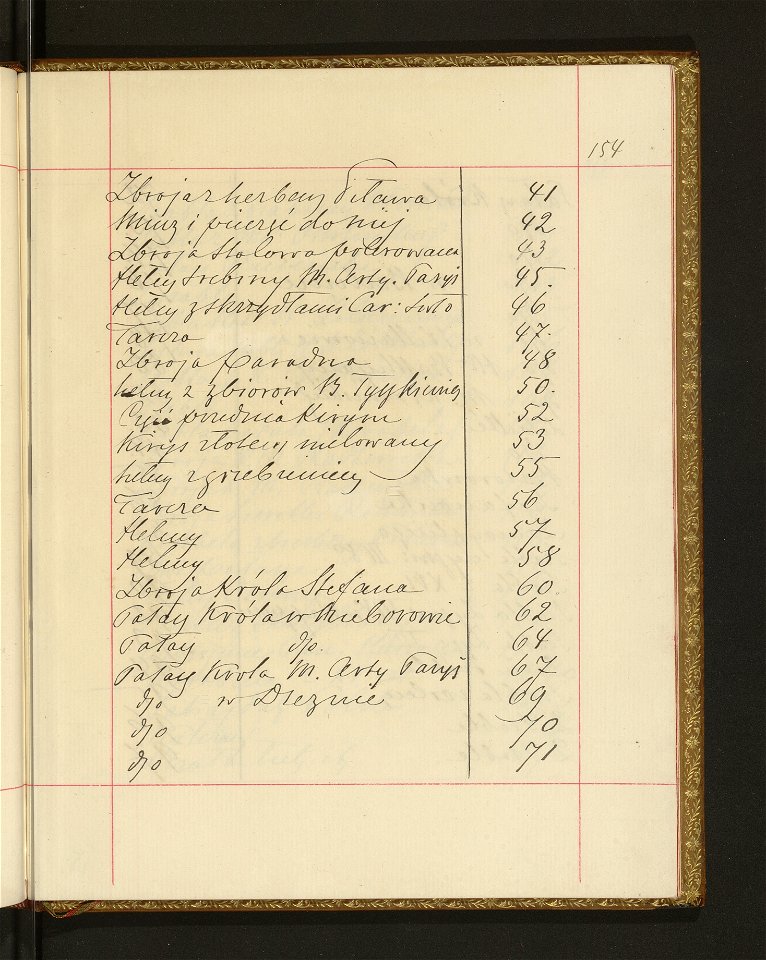 154
Zbroja z herbem Pilawa 41
Miecz i puerzé do niéj 42
Zbroja stalowa polerowana 43
Hełm srebrny M. Arty. Paryż 45.
Hełm z skrzydłami Car: Sioło 46
Tarcza 47.
Zbroja paradna 48
hełm z zbiorów B. Tyszkiewicz 50.
Część przednia Kirysu 52
Kirys złotem nielowany 53
hełm z grzebieniem 55
Tarcza 56
Hełmy 57
Hełmy 58
Zbroja Króla Stefana 60
Pałasz Króla w Nieborowie 62
Pałasz d/o. 64
Pałasz Króla M. Arty Paryż 67
d/o w Dreznie 69
d/o 70
d/o 71